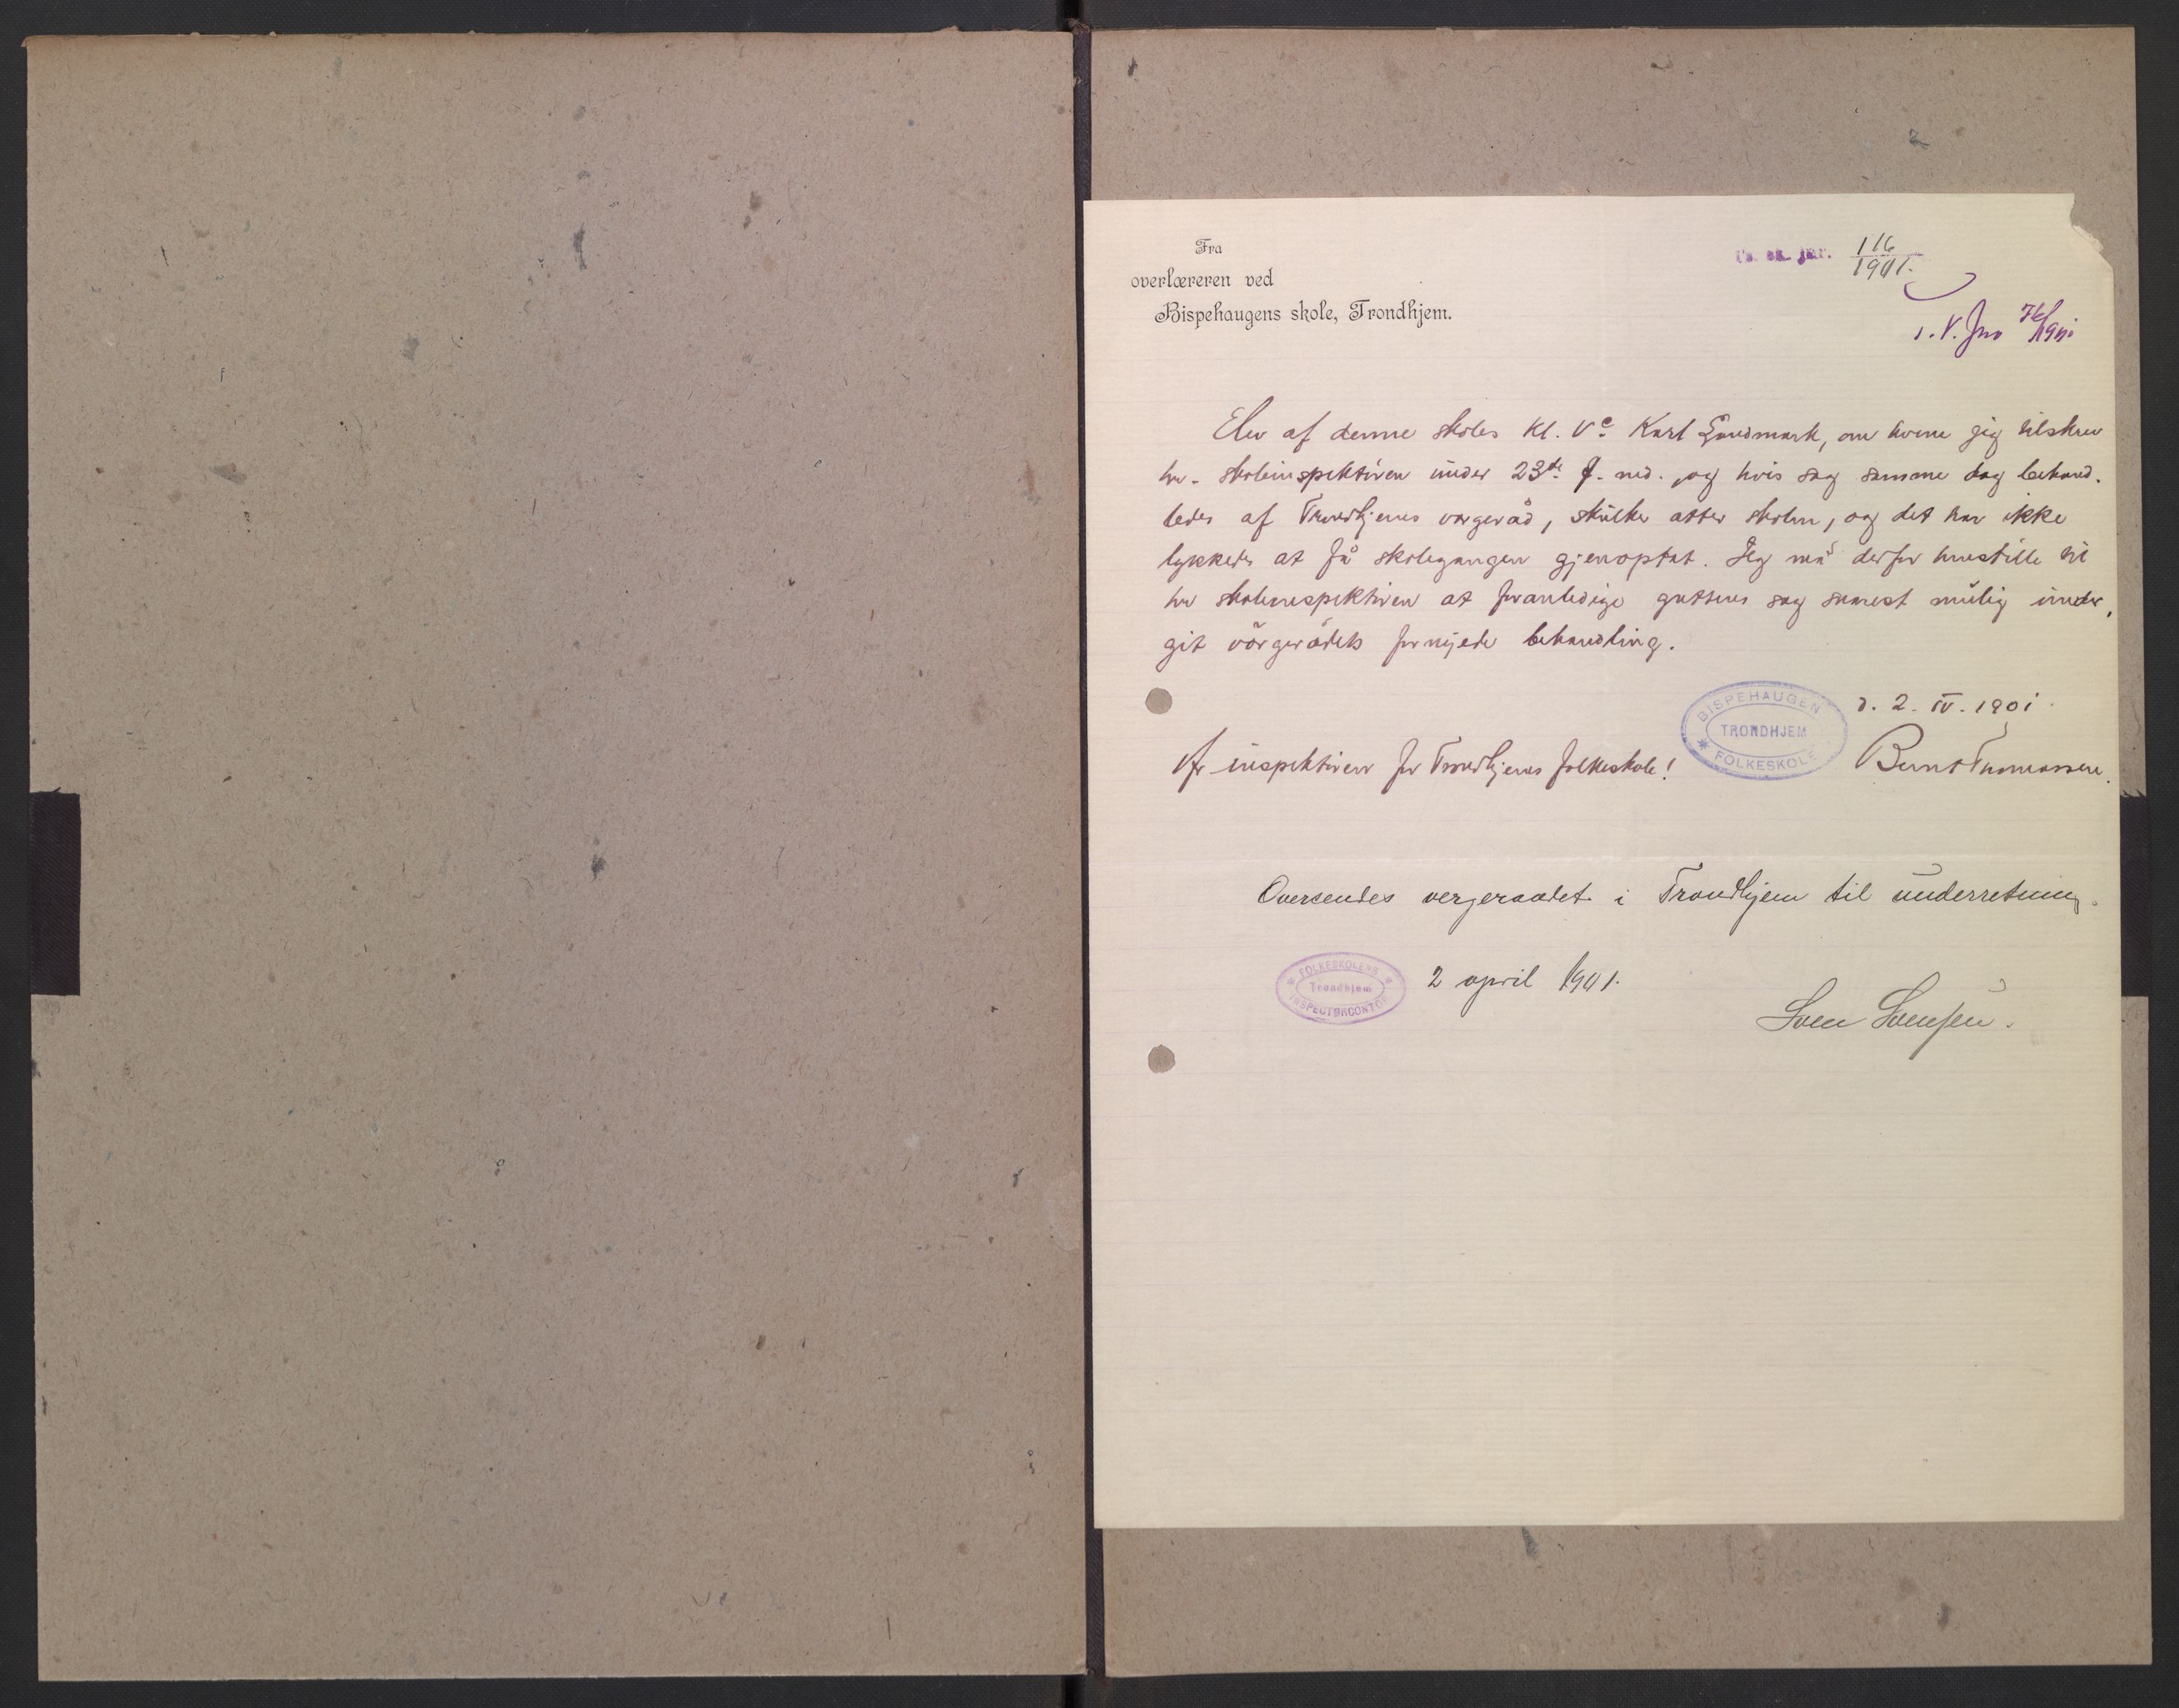 Fra
overlæreren ved
Bispehaugens skole, Trondhjem.
116
1901.
Elev af denne skoles kl. Vc. Karl Landmark, om hvem jeg tilskrev
hr. skoleinspektören under 23de f. md., og hvis sag samme dag behand-
ledes af Trondhjems vergeråd, skulker atter skolen, og det har ikke
lykkedes at få skolegangen gjenoptat. Jeg må derfor henstille til
hr skoleinspektören at foranledige guttens sag snarest mulig under-
git vergerådets fornyede behandling.
d. 2. IV. 1901.
BISPEHAUGEN
TRONDHJEM
FOLKESKOLE
Hr inspektören for Trondhjems folkeskole!
Bernt Thomassen.
Oversendes vergeraadet i Trondhjem til underretning.
FOLKESKOLENS
Trondhjem
INSPECTØRCONTOR
2 april 1901.
Sven Svensen.